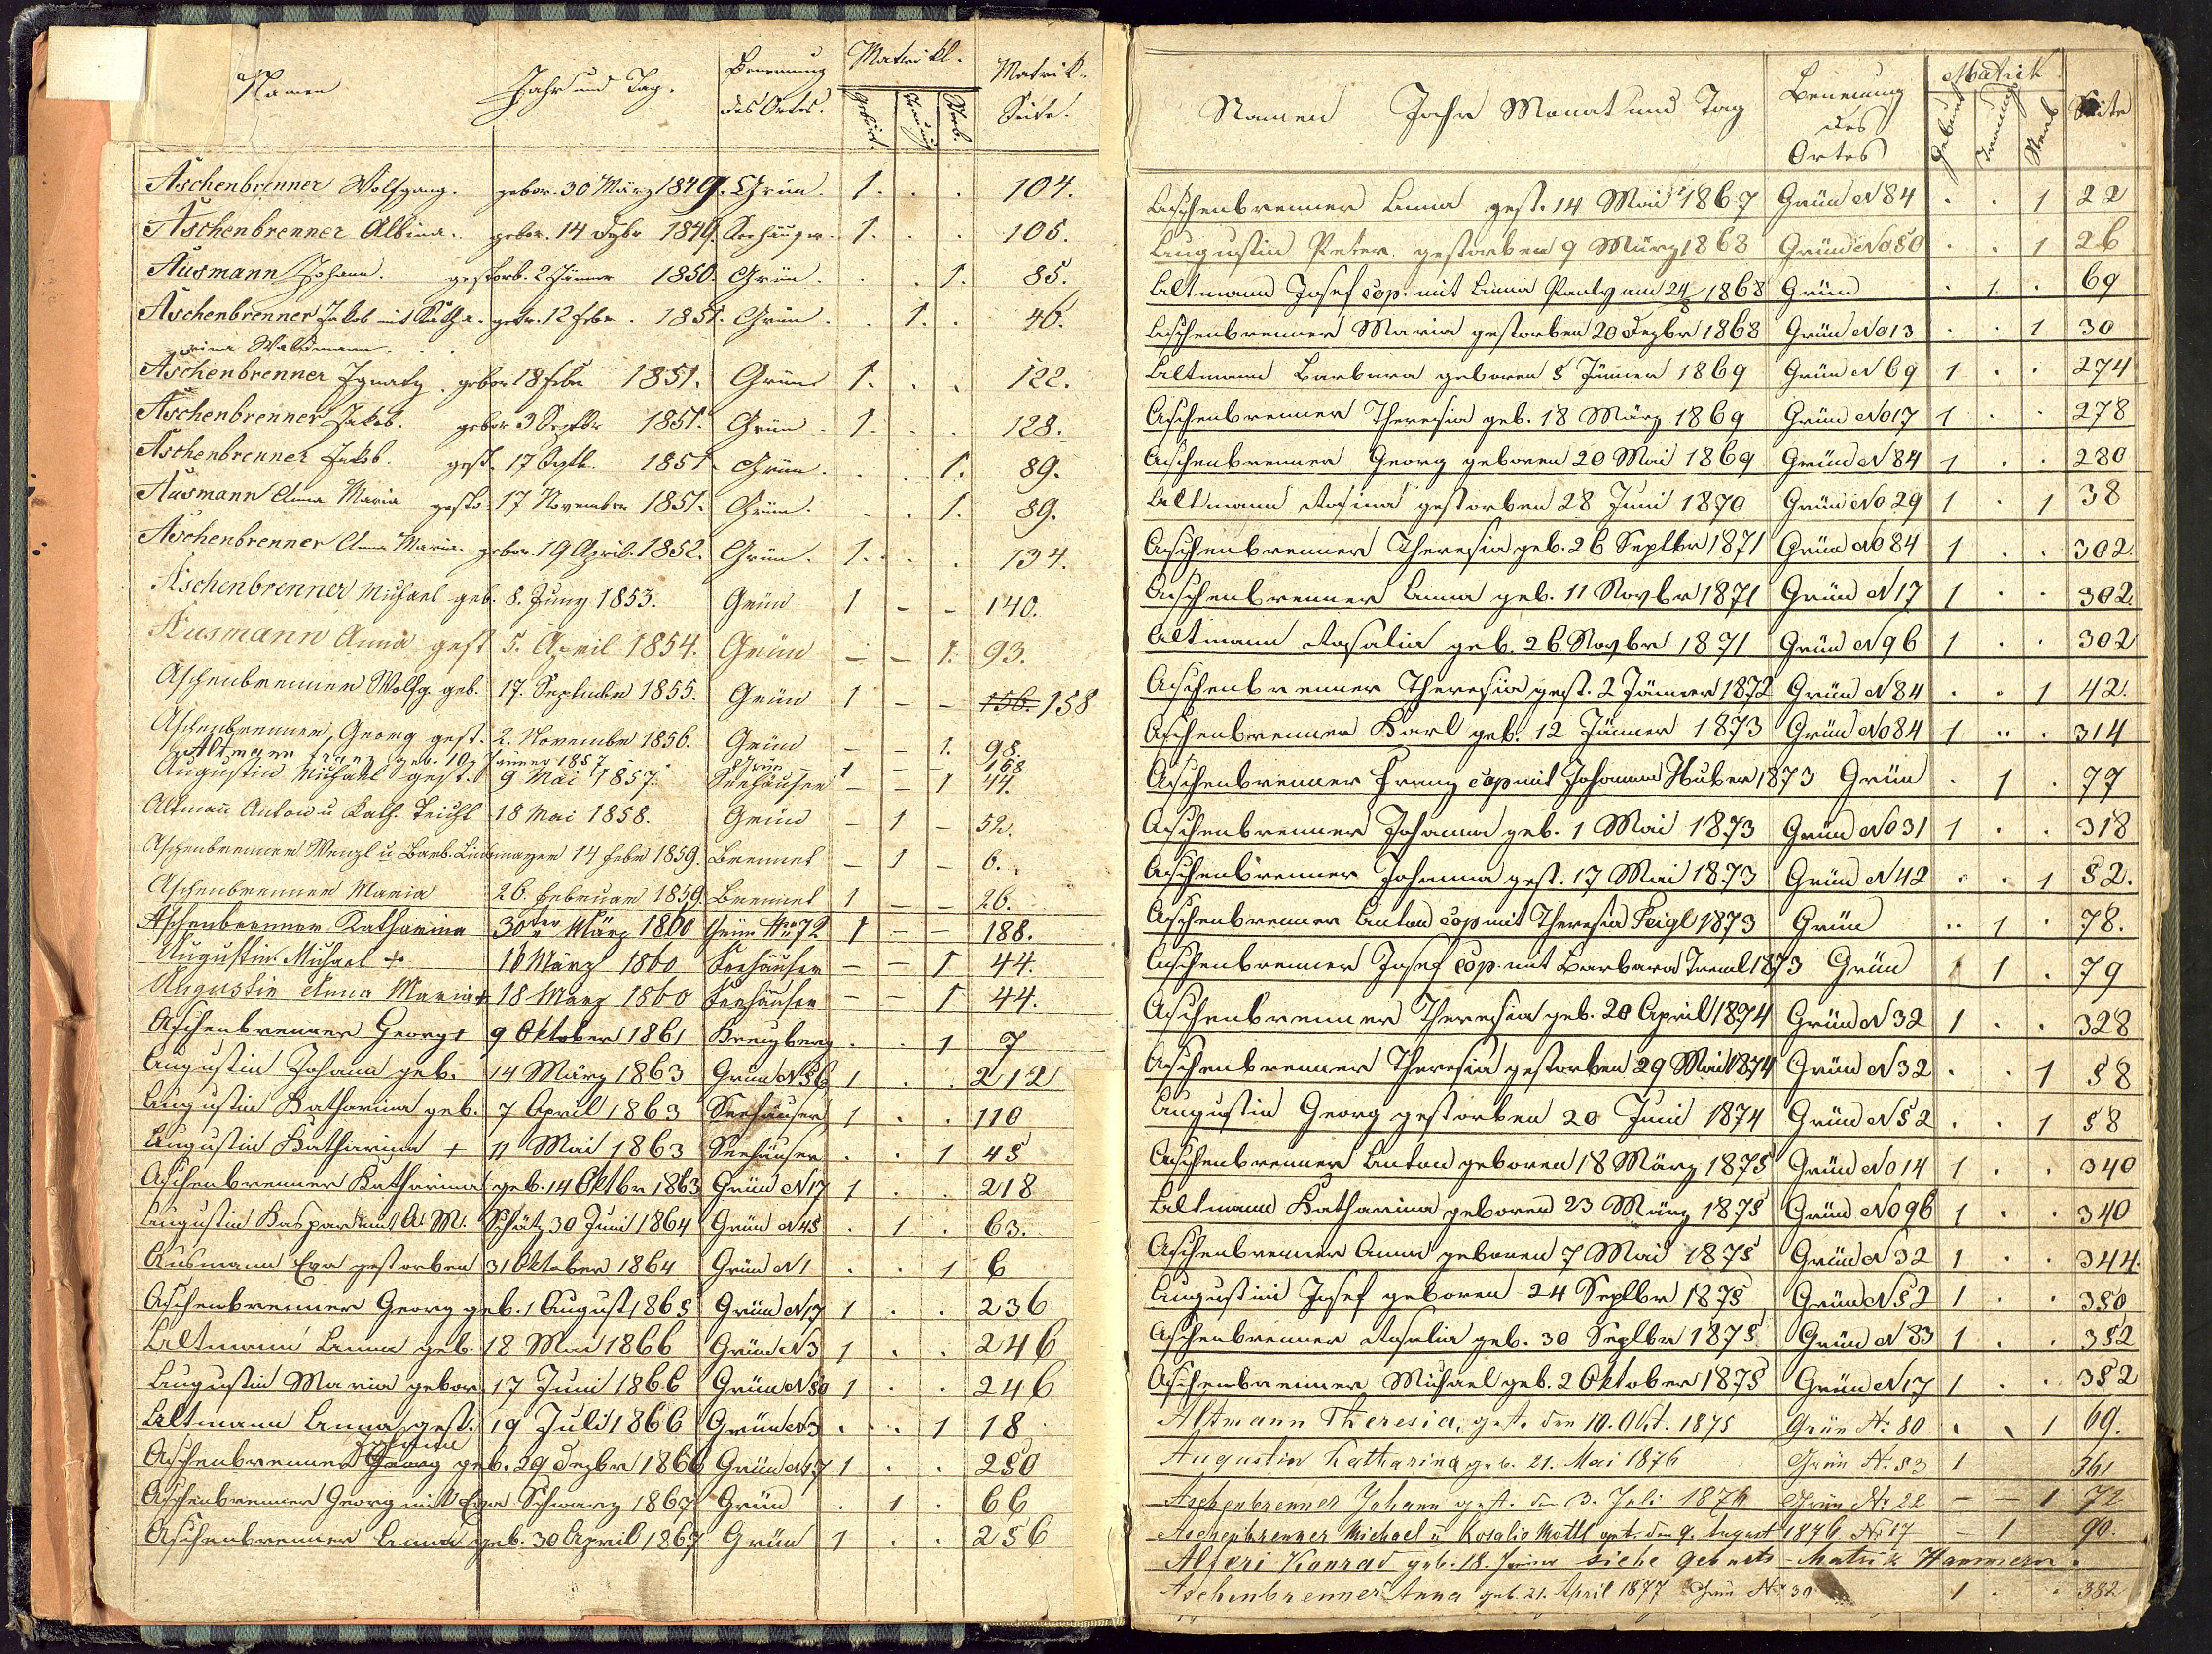 Namen Jahr und Tag. Benennung des Ortes. Matrikl. Matrik.
Geburt. Trauung Sterb. Seite.
Aschenbrenner Wolfgang. gebor. 30 März 1849. Grün. 1. . . 104.
Aschenbrenner Albina. gebor. 14 Dzbr 1849. Seehäuser. 1. . 105.
Ausmann Johann. gestorb. 2. Jänner 1850. Grün. . . 1. 85.
Aschenbrenner Jakob mit Katha- getr. 12 Febr. 1851. Grün. . 1. . 46.
rina Waldmann.
Aschenbrenner Ignatz. gebor 18 Febr 1851. Grün 1. . . 122.
Aschenbrenner Jakob. gebor 3 Septbr 1851. Grün. 1. . . 128.
Aschenbrenner Jakob. gest. 17 Septb. 1851. Grün. . . 1. 89.
Ausmann Anna Maria gestb. 17 November 1851. Grün. . . 1. 89.
Aschenbrenner Anna Maria. gebor. 19 April. 1852. Grün. 1. . . 134.
Aschenbrenner Michael geb. 8. Juny 1853. Grün 1 - - 140.
Ausmann Anna gest 5. April 1854. Grün - - 1. 93.
Aschenbrenner Wolfg. geb. 17. September 1855. Grün 1 - - 156. 158
Aschenbrenner Georg gest. 2. November 1856. Grün - - 1. 98.
Altmann Franz geb. 10 Jänner 1857 Grün 1 - - 168
Augustin Michael gest. 9 Mai 1857. Seehäuser - - 1 44.
Altmann Anton u Kath. 18 Mai 1858. Grün - 1 - 52.
Aschenbrenner Wenzl u Barb. 14 Febr 1859. Brennet - 1 - 6.
Aschenbrenner Maria 26. Februar 1859. Brennet 1 - - 26.
Aschenbrenner Katharina 30ter März 1860 Grün Nro 72 1 - - 188.
Augustin Michael + 16 März 1860 Seehäuser - - 1 44.
Augustin Anna Maria + 18 März 1860 Seehäuser - - 1 44.
Aschenbrenner Georg + 9 Oktober 1861 Kreuzberg . . 1 7
Augustin Johann geb. 14 März 1863 Grün N 56 1 . . 212
Augustin Katharina geb. 7 April 1863 Seehäuser 1 . . 110
Augustin Katharina + 11 Mai 1863 Seehäuser . . 1 45
Aschenbrenner Katharina geb. 14 Oktbr 1863 Grün N 17 1 . . 218
Augustin Kaspar mit A. M. Schätz 30 Juni 1864 Grün N 45 . 1 . 63.
Ausmann Eva gestorben 31 Oktober 1864 Grün N 1 . . 1 6
Aschenbrenner Georg geb. 1 August 1865 Grün N 17 1 . . 236
Altmann Anna geb. 18 Mai 1866 Grün N 3 1 . . 246
Augustin Maria gebor. 17 Juni 1866 Grün N 50 1 . . 246
Altmann Anna gest. 19 Juli 1866 Grün N 3 . . 1 18
Johann
Aschenbrenner Georg geb. 29 Dezbr 1866 Grün N 17 1 . . 250
Aschenbrenner Georg mit Eva Schwarz 1867 Grün . 1 . 66
Aschenbrenner Anna geb. 30 April 1867 Grün 1 . . 256
Namen Jahr Monat und Tag Benennung des Ortes Matrik Seite
Geburt Trauung Sterb
Aschenbrenner Anna gest. 14 Mai 1867 Grün N 84 . . 1 22
Augustin Peter gestorben 9 März 1868 Grün No 50 . . 1 26
Altmann Josef cop. mit Anna Pauly am 24/8 1868 Grün . 1. . 69
Aschenbrenner Maria gestorben 20 Dezbr 1868 Grün No 13 . . 1 30
Altmann Barbara geboren 5 Jänner 1869 Grün N 69 1 . . 274
Aschenbrenner Theresia geb. 18 März 1869 Grün No 17 1 . . 278
Aschenbrenner Georg geboren 20 Mai 1869 Grün N 84 1 . . 280
Altmann Rosina gestorben 28 Juni 1870 Grün No 29 1 . 1 38
Aschenbrenner Theresia geb. 26 Septbr 1871 Grün No 84 1 . . 302.
Aschenbrenner Anna geb. 11 Novbr 1871 Grün N 17 1 . . 302.
Altmann Rosalia geb. 26 Novbr 1871 Grün N 96 1 . . 302
Aschenbrenner Theresia gest. 2 Jänner 1872 Grün N 84 . . 1 42.
Aschenbrenner Karl geb. 12 Jänner 1873 Grün No 84 1 .. . 314
Aschenbrenner Franz cop mit Johanna Huber 1873 Grün . 1 . 77
Aschenbrenner Johanna geb. 1 Mai 1873 Grün No 31 1 . . 318
Aschenbrenner Johanna gest. 17 Mai 1873 Grün N 42 . . 1 52.
Aschenbrenner Anton cop mit Theresia Feigl 1873 Grün .. 1 . 78.
Aschenbrenner Josef cop. mit Barbara Treml 1873 Grün . 1 . 79
Aschenbrenner Theresia geb. 20 April 1874 Grün N 32 1 . . 328
Aschenbrenner Theresia gestorben 29 Mai 1874 Grün N 32 . . 1 58
Augustin Georg gestorben 20 Juni 1874 Grün N 52 . . 1 58
Aschenbrenner Anton geboren 18 März 1875 Grün No 14 1 . . 340
Altmann Katharina geboren 23 März 1875 Grün No 96 1 . . 340
Aschenbrenner Anna geboren 7 Mai 1875 Grün N 32 1 . . 344.
Augustin Josef geboren 24 Septbr 1875 Grün N 52 1 . . 350
Aschenbrenner Rosalia geb. 30 Septbr 1875 Grün N 83 1 . . 352
Aschenbrenner Michael geb. 2 Oktober 1875 Grün N 17 1 . . 352
Altmann Theresia, gest. den 10. Okt. 1875 Grün N. 80 . . 1 69.
Augustin Katharina geb. 21. Mai 1876 Grün N. 53 1 361
Aschenbrenner Johann gest. den 3. Juli 1876 Grün Nr 22 - - 1 72
Aschenbrenner Michael u Rosalia Mottl get. den 9. August 1876 Nr 17 - 1 90.
Alfari Konrad geb. 18. Jänner siehe Geburts-Matrik Hammern.
Aschenbrenner Anna geb. 21. April 1877 Grün Nr 30 1 . . 382